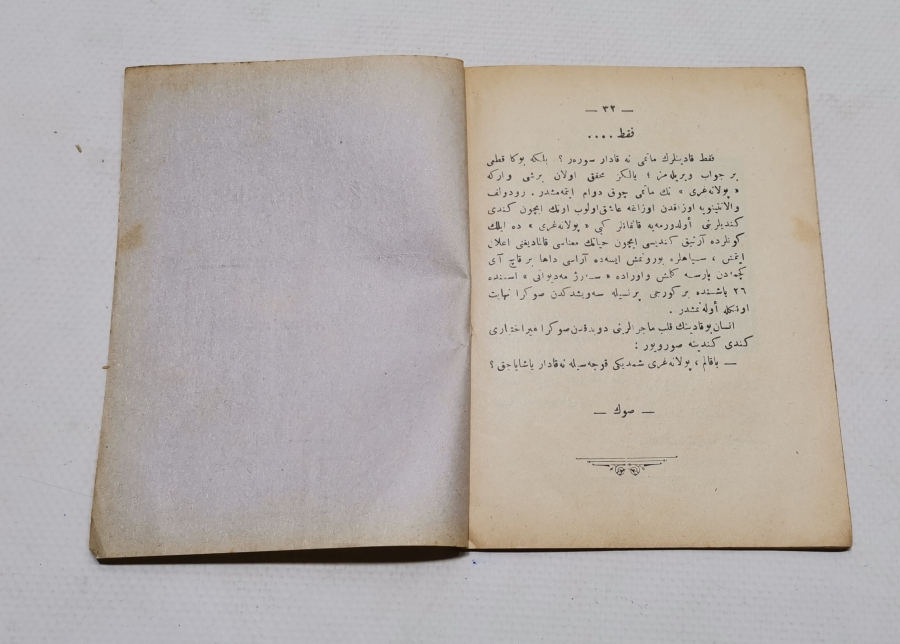 — ٣٢ —
فقط ....
فقط قادینلرك ماتمی نه قادار سورەر ؟ بلکه بوکا قطعی
بر جواب ویریله‌مز ؛ یالکز محقق اولان برشی وارکه
« پولانه‌غری » نك ماتمی چوق دوام ایتمه‌مشدر . رودولف
والانتینویه اوزاقدن اوزاغه عاشق اولوب اونك ایچون کندی
کندیلرینی أولدورمه‌یه قالقانلر کبی « پولانه‌غری » ده ایلك
کونلرده آرتیق کندیسی ایچون حیاتك معناسی قالمادیغنی اعلان
ایتمش ، سیاهلره بورونمش ایسه‌ده آراسی داها بر قاچ آی
کچمه‌دن پارسه کلمش واوراده « سەرژ مەدیوانی » اسمنده
٢٦ یاشنده بر کورجی پرنسیله سه‌ویشدکدن صوکرا نهایت
اونکله أوله‌نمشدر .
انسان بو قادینك قلب ماجرالرینی دویدقدن صوکرا غیر اختیاری
کندی کندینه صورویور :
— باقالم ، پولانه‌غری شمدیکی قوجه‌سیله نه‌قادار یاشایاجق ؟
— صوك —